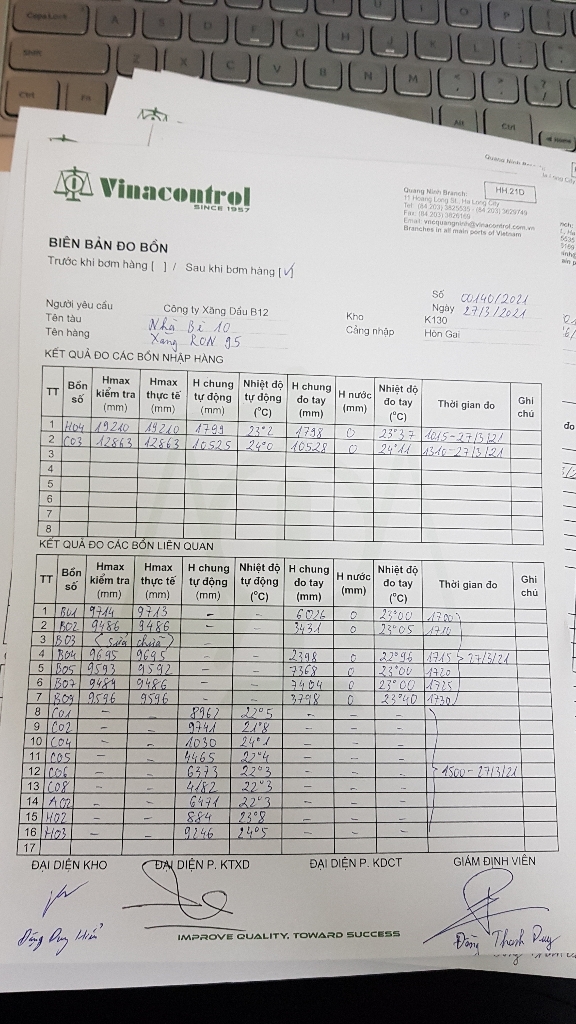 Vinacontrol
SINCE 1957
Quang Ninh Branch:
11 Hoang Long St., Ha Long City
Tel: (84.203) 3825535 - (84.203) 3629749
Fax: (84.203) 3826169
Email: vncquangninh@vinacontrol.com.vn
Branches in all main ports of Vietnam
HH.21D
BIÊN BẢN ĐO BỒN
Trước khi bơm hàng [ ] / Sau khi bơm hàng [√]
Số 00140/2021
Ngày 27/3/2021
Người yêu cầu Công ty Xăng Dầu B12 Kho K130
Tên tàu Nhà Bè 10 Cảng nhập Hòn Gai
Tên hàng Xăng RON 95
KẾT QUẢ ĐO CÁC BỒN NHẬP HÀNG
TT Bồn số Hmax kiểm tra (mm) Hmax thực tế (mm) H chung tự động (mm) Nhiệt độ tự động (°C) H chung đo tay (mm) H nước (mm) Nhiệt độ đo tay (°C) Thời gian đo Ghi chú
1 H04 19210 19210 1799 23°2 1798 0 23°37 1015-27/3/21
2 C03 12863 12863 10525 24°0 10528 0 24°11 1310-27/3/21
3
4
5
6
7
8
KẾT QUẢ ĐO CÁC BỒN LIÊN QUAN
TT Bồn số Hmax kiểm tra (mm) Hmax thực tế (mm) H chung tự động (mm) Nhiệt độ tự động (°C) H chung đo tay (mm) H nước (mm) Nhiệt độ đo tay (°C) Thời gian đo Ghi chú
1 B01 9714 9713 - - 6026 0 23°00 1700
2 B02 9486 9486 - - 3431 0 23°05 1710
3 B03 (Sửa chữa)
4 B04 9695 9695 - - 2398 0 22°96 1715 27/3/21
5 B05 9593 9592 - - 7368 0 23°00 1720
6 B07 9484 9486 - - 7404 0 23°00 1725
7 B09 9596 9596 - - 3798 0 23°40 1730
8 C01 - - 8962 22°5 - - -
9 C02 - - 9741 21°8 - - -
10 C04 - - 1030 24°1 - - -
11 C05 - - 4465 22°4 - - -
12 C06 - - 6373 22°3 - - - 1500-27/3/21
13 C08 - - 4182 22°3 - - -
14 A02 - - 6471 22°3 - - -
15 H02 - - 884 23°8 - - -
16 H03 - - 9246 24°5 - - -
17
ĐẠI DIỆN KHO ĐẠI DIỆN P. KTXD ĐẠI DIỆN P. KDCT GIÁM ĐỊNH VIÊN
Đặng Duy Hiển Đặng Thanh Duy
IMPROVE QUALITY, TOWARD SUCCESS